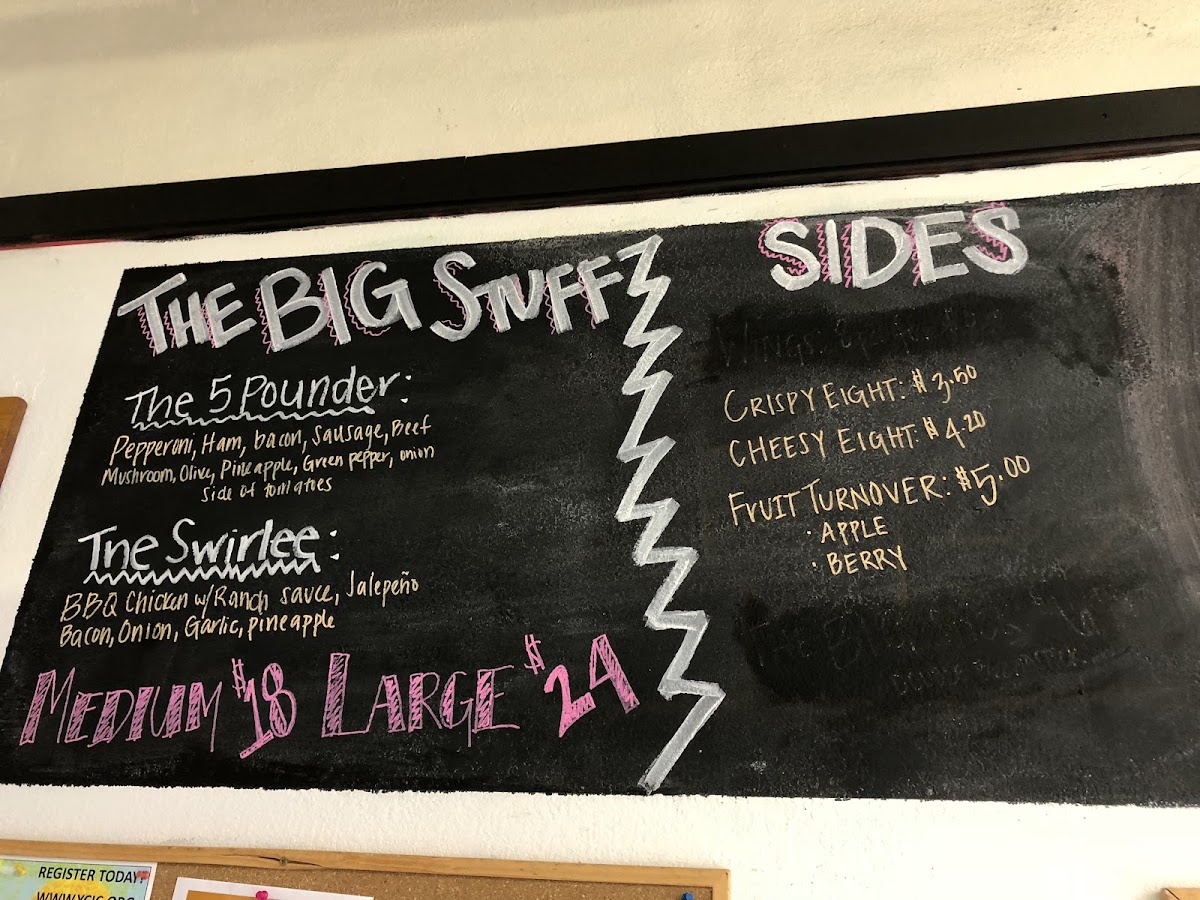 THE BIG STUFF
The 5 Pounder:
Pepperoni, Ham, bacon, Sausage, Beef
Mushroom, Olive, Pineapple, Green pepper, onion
Side of tomatoes
The Swirlee:
BBQ Chicken w/Ranch sauce, Jalepeño
Bacon, Onion, Garlic, pineapple
MEDIUM $18 LARGE $24
SIDES
WINGS:
CRISPY EIGHT: $3.50
CHEESY EIGHT: $4.20
FRUIT TURNOVER: $5.00
· APPLE
· BERRY
REGISTER TODAY!